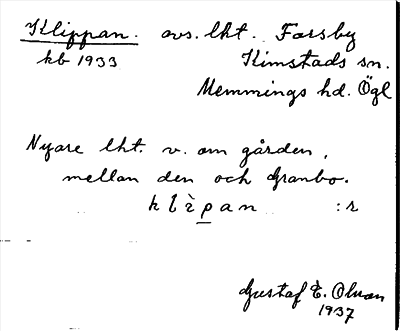 Klippan. avs. lht. Forsby
kb 1933 Kimstads sn.
Memmings hd. Ögl
Nyare lht. v. om gården,
mellan den och Granbo.
klìpan :r
Gustaf E. Olsson
1937